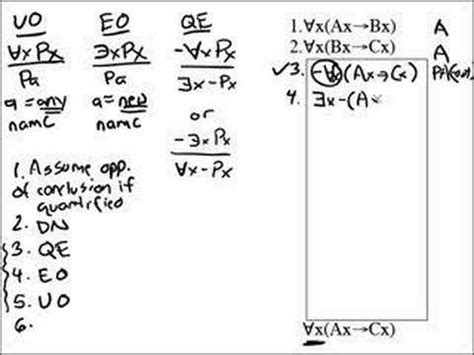 UO
∀xPx
Pa
a = any
name
EO
∃xPx
Pa
a = new
name
QE
-∀xPx
∃x-Px
or
-∃xPx
∀x-Px
1. Assume opp.
of conclusion if
quantified
2. DN
3. QE
4. EO
5. UO
6.
1. ∀x(Ax→Bx) A
2. ∀x(Bx→Cx) A
✓3. -∀x(Ax→Cx)
4. ∃x-(A
∀x(Ax→Cx)